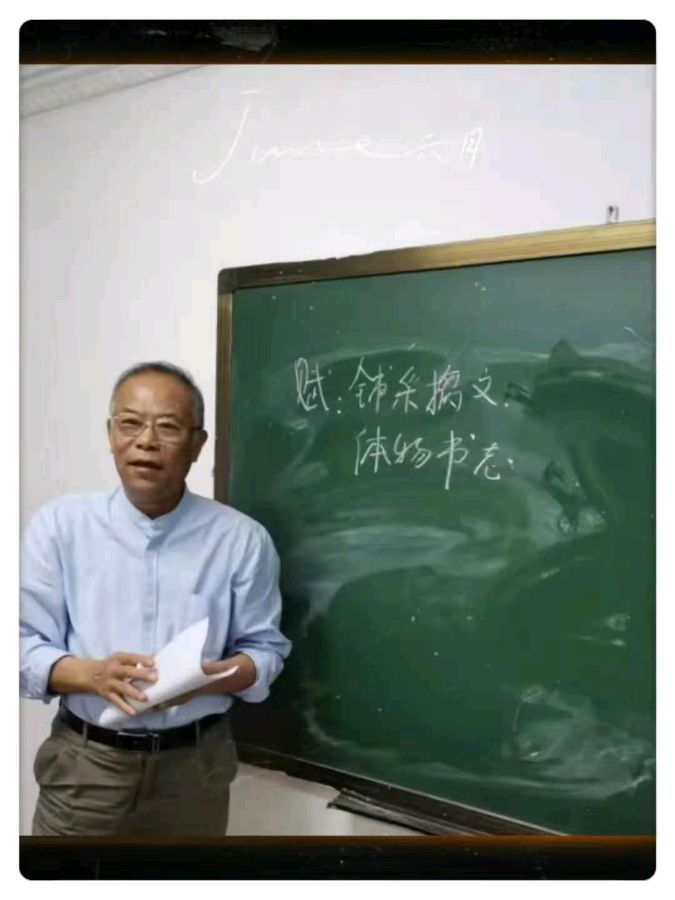 June 六月
赋:铺采摛文.
体物书志.